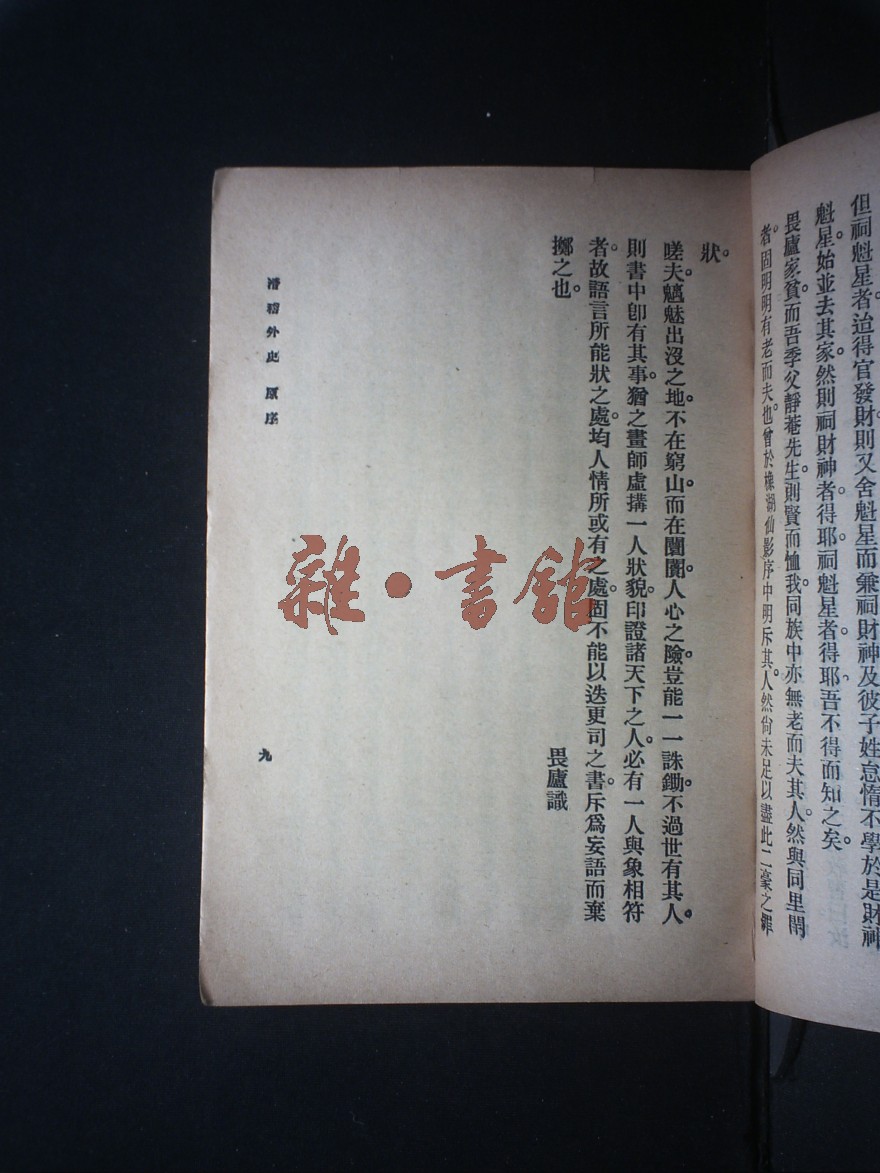 但祠魁星者。迨得官發財。則又舍魁星而兼祠財神。及彼子姓怠惰不學。於是財神
魁星。始並去其家。然則祠財神者。得耶。祠魁星者。得耶。吾不得而知之矣。
畏廬家貧。而吾季父靜菴先生。則賢而恤我。同族中亦無老而夫其人。然與同里閈
者。固明明有老而夫也。曾於橡湖仙影序中。明斥其人。然尙未足以盡此二豪之罪
狀。
嗟夫。魑魅出沒之地。不在窮山。而在闤闠。人心之險。豈能一一誅鋤。不過世有其人。
則書中卽有其事。猶之畫師虛搆一人狀貌。印證諸天下之人。必有一人與象相符
者。故語言所能狀之處。均人情所或有之處。固不能以迭更司之書。斥爲妄語而棄
擲之也。
畏廬識
滑稽外史 原序
九
雜·書館